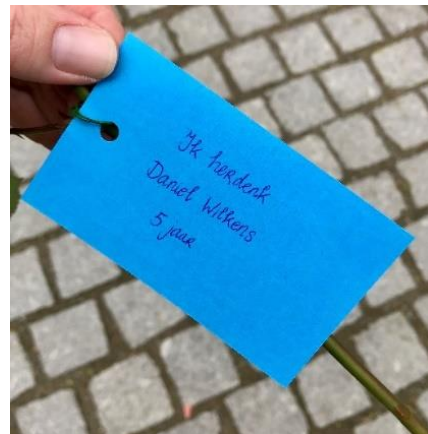 Ik herdenk
Daniel Wilkens
5 jaar